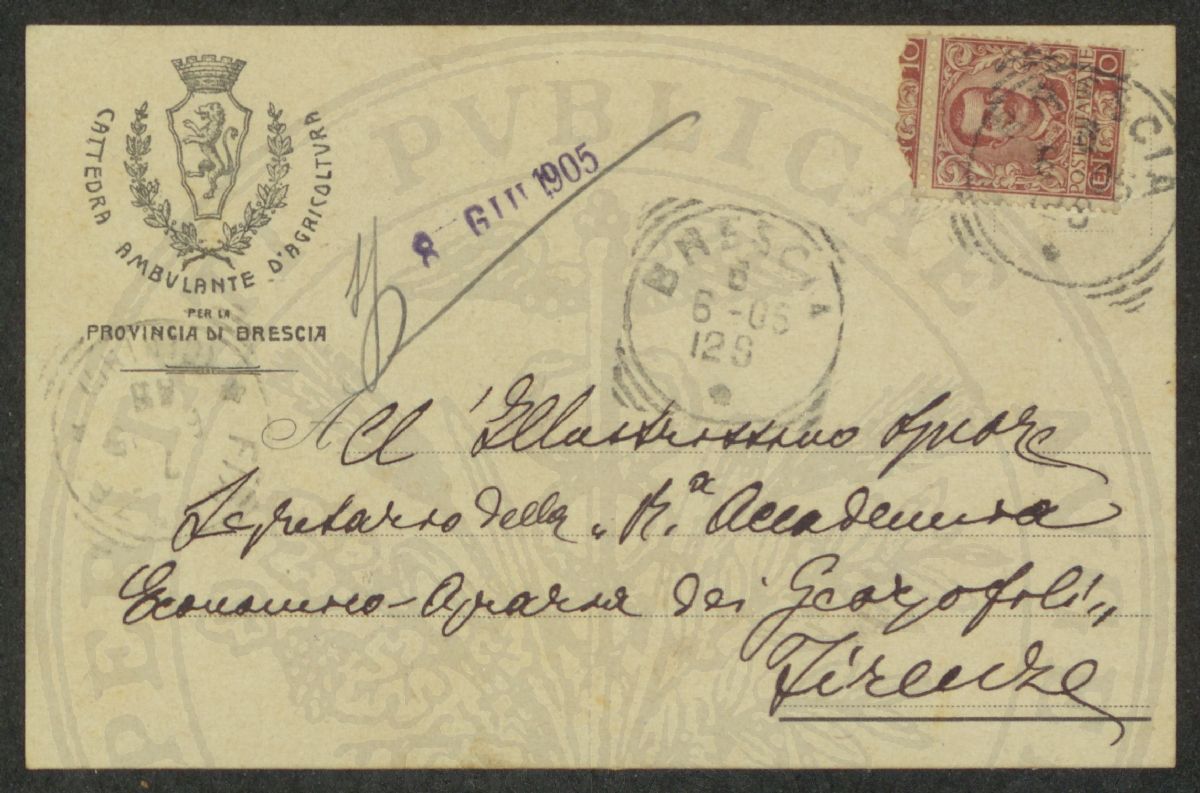 CATTEDRA AMBVLANTE D'AGRICOLTVRA
PER LA
PROVINCIA DI BRESCIA
8 GIU 1905
BRESCIA
6 - 05
12 S
10
10
POSTE ITALIANE
CEN
CIA
PVBLICAE
All'Illustrissimo Signore
Segretario della „R.a Accademia
Economico-Agraria dei Georgofili„
Firenze